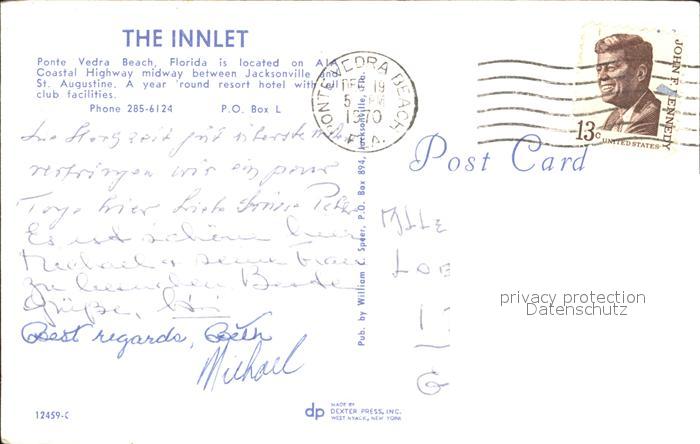 THE INNLET
Ponte Vedra Beach, Florida is located on A1A
Coastal Highway midway between Jacksonville and
St. Augustine. A year 'round resort hotel with all
club facilities.
Phone 285-6124 P.O. Box L
PONTE VEDRA BEACH
DEC 19
5 PM
1970
FLA.
JOHN F. KENNEDY
13c
UNITED STATES
Post Card
wir ein paar
Tage hier Peter
Es ist schön
Michael & seine Frau
zu besuchen. Beste
Grüße,
Best regards, Beth
Michael
Pub. by William C. Speer, P.O. Box 894, Jacksonville, Fla.
Mlle
privacy protection
Datenschutz
G
12459-C
dp
MADE BY
DEXTER PRESS, INC.
WEST NYACK, NEW YORK